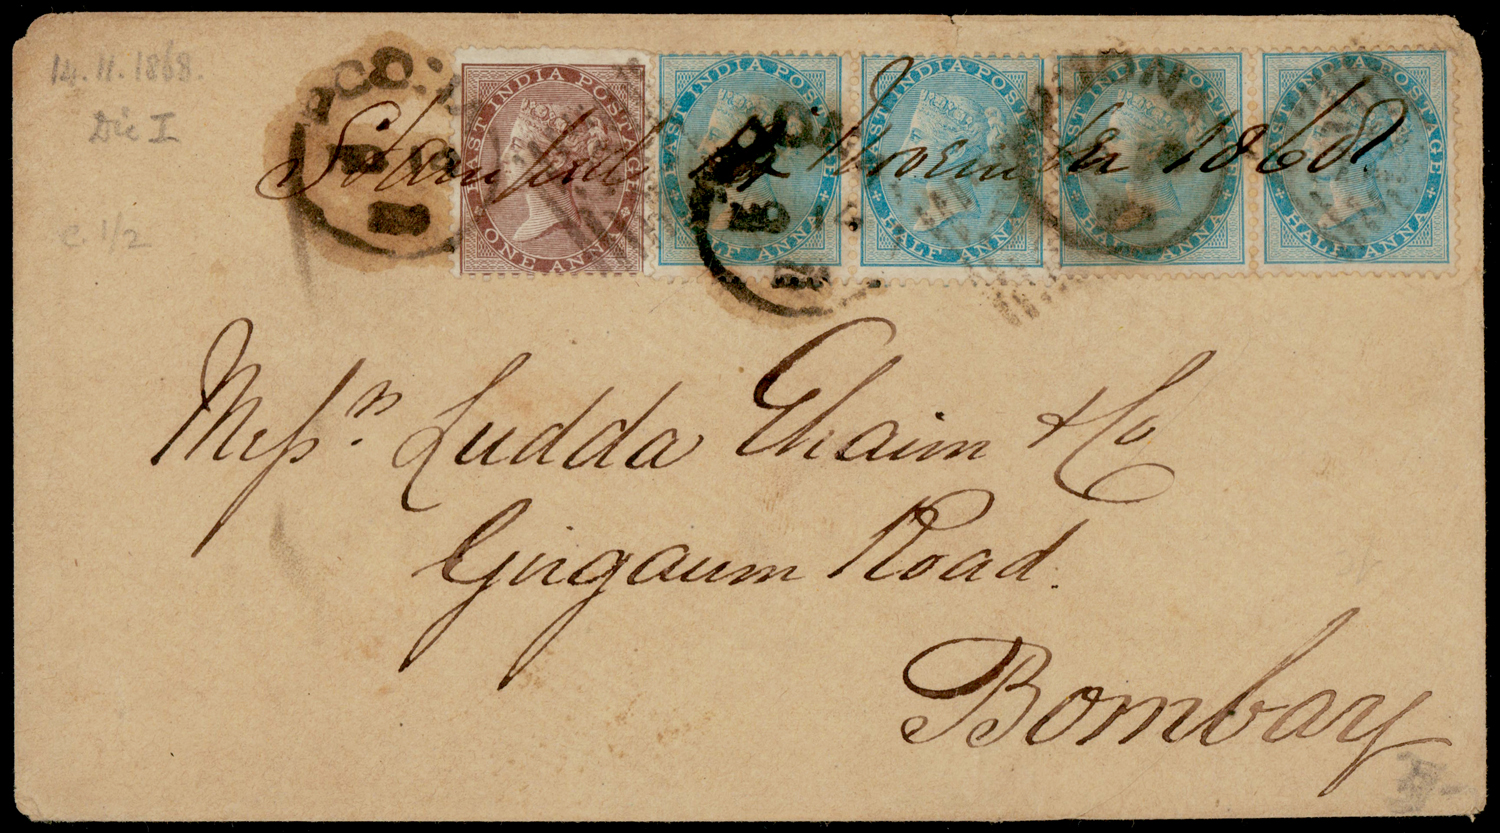 14.11.1868.
Die I
c. 1/2
EAST INDIA POSTAGE
ONE ANNA
EAST INDIA POSTAGE
HALF ANNA
EAST INDIA POSTAGE
HALF ANNA
EAST INDIA POSTAGE
HALF ANNA
EAST INDIA POSTAGE
HALF ANNA
14 November 1868
NO 14
Messrs. Ludda Ehaim & Co
Girgaum Road.
Bombay